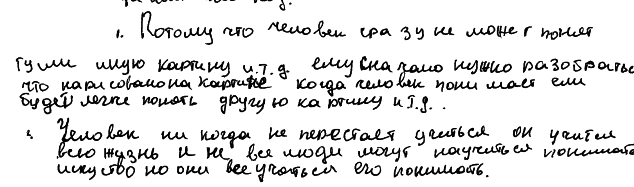 1. Потому что человек сразу не может понят
ту или иную картину и.т.д ему сначало нужно разобраться
что нарисовано на картине когда человек понимает ему
будет легче понять другую картину и т.д..
Человек ни когда не перестаёт учиться он учится
всю жизнь и не все люди могут научиться понимать
искуство но они все учаться его понимать.